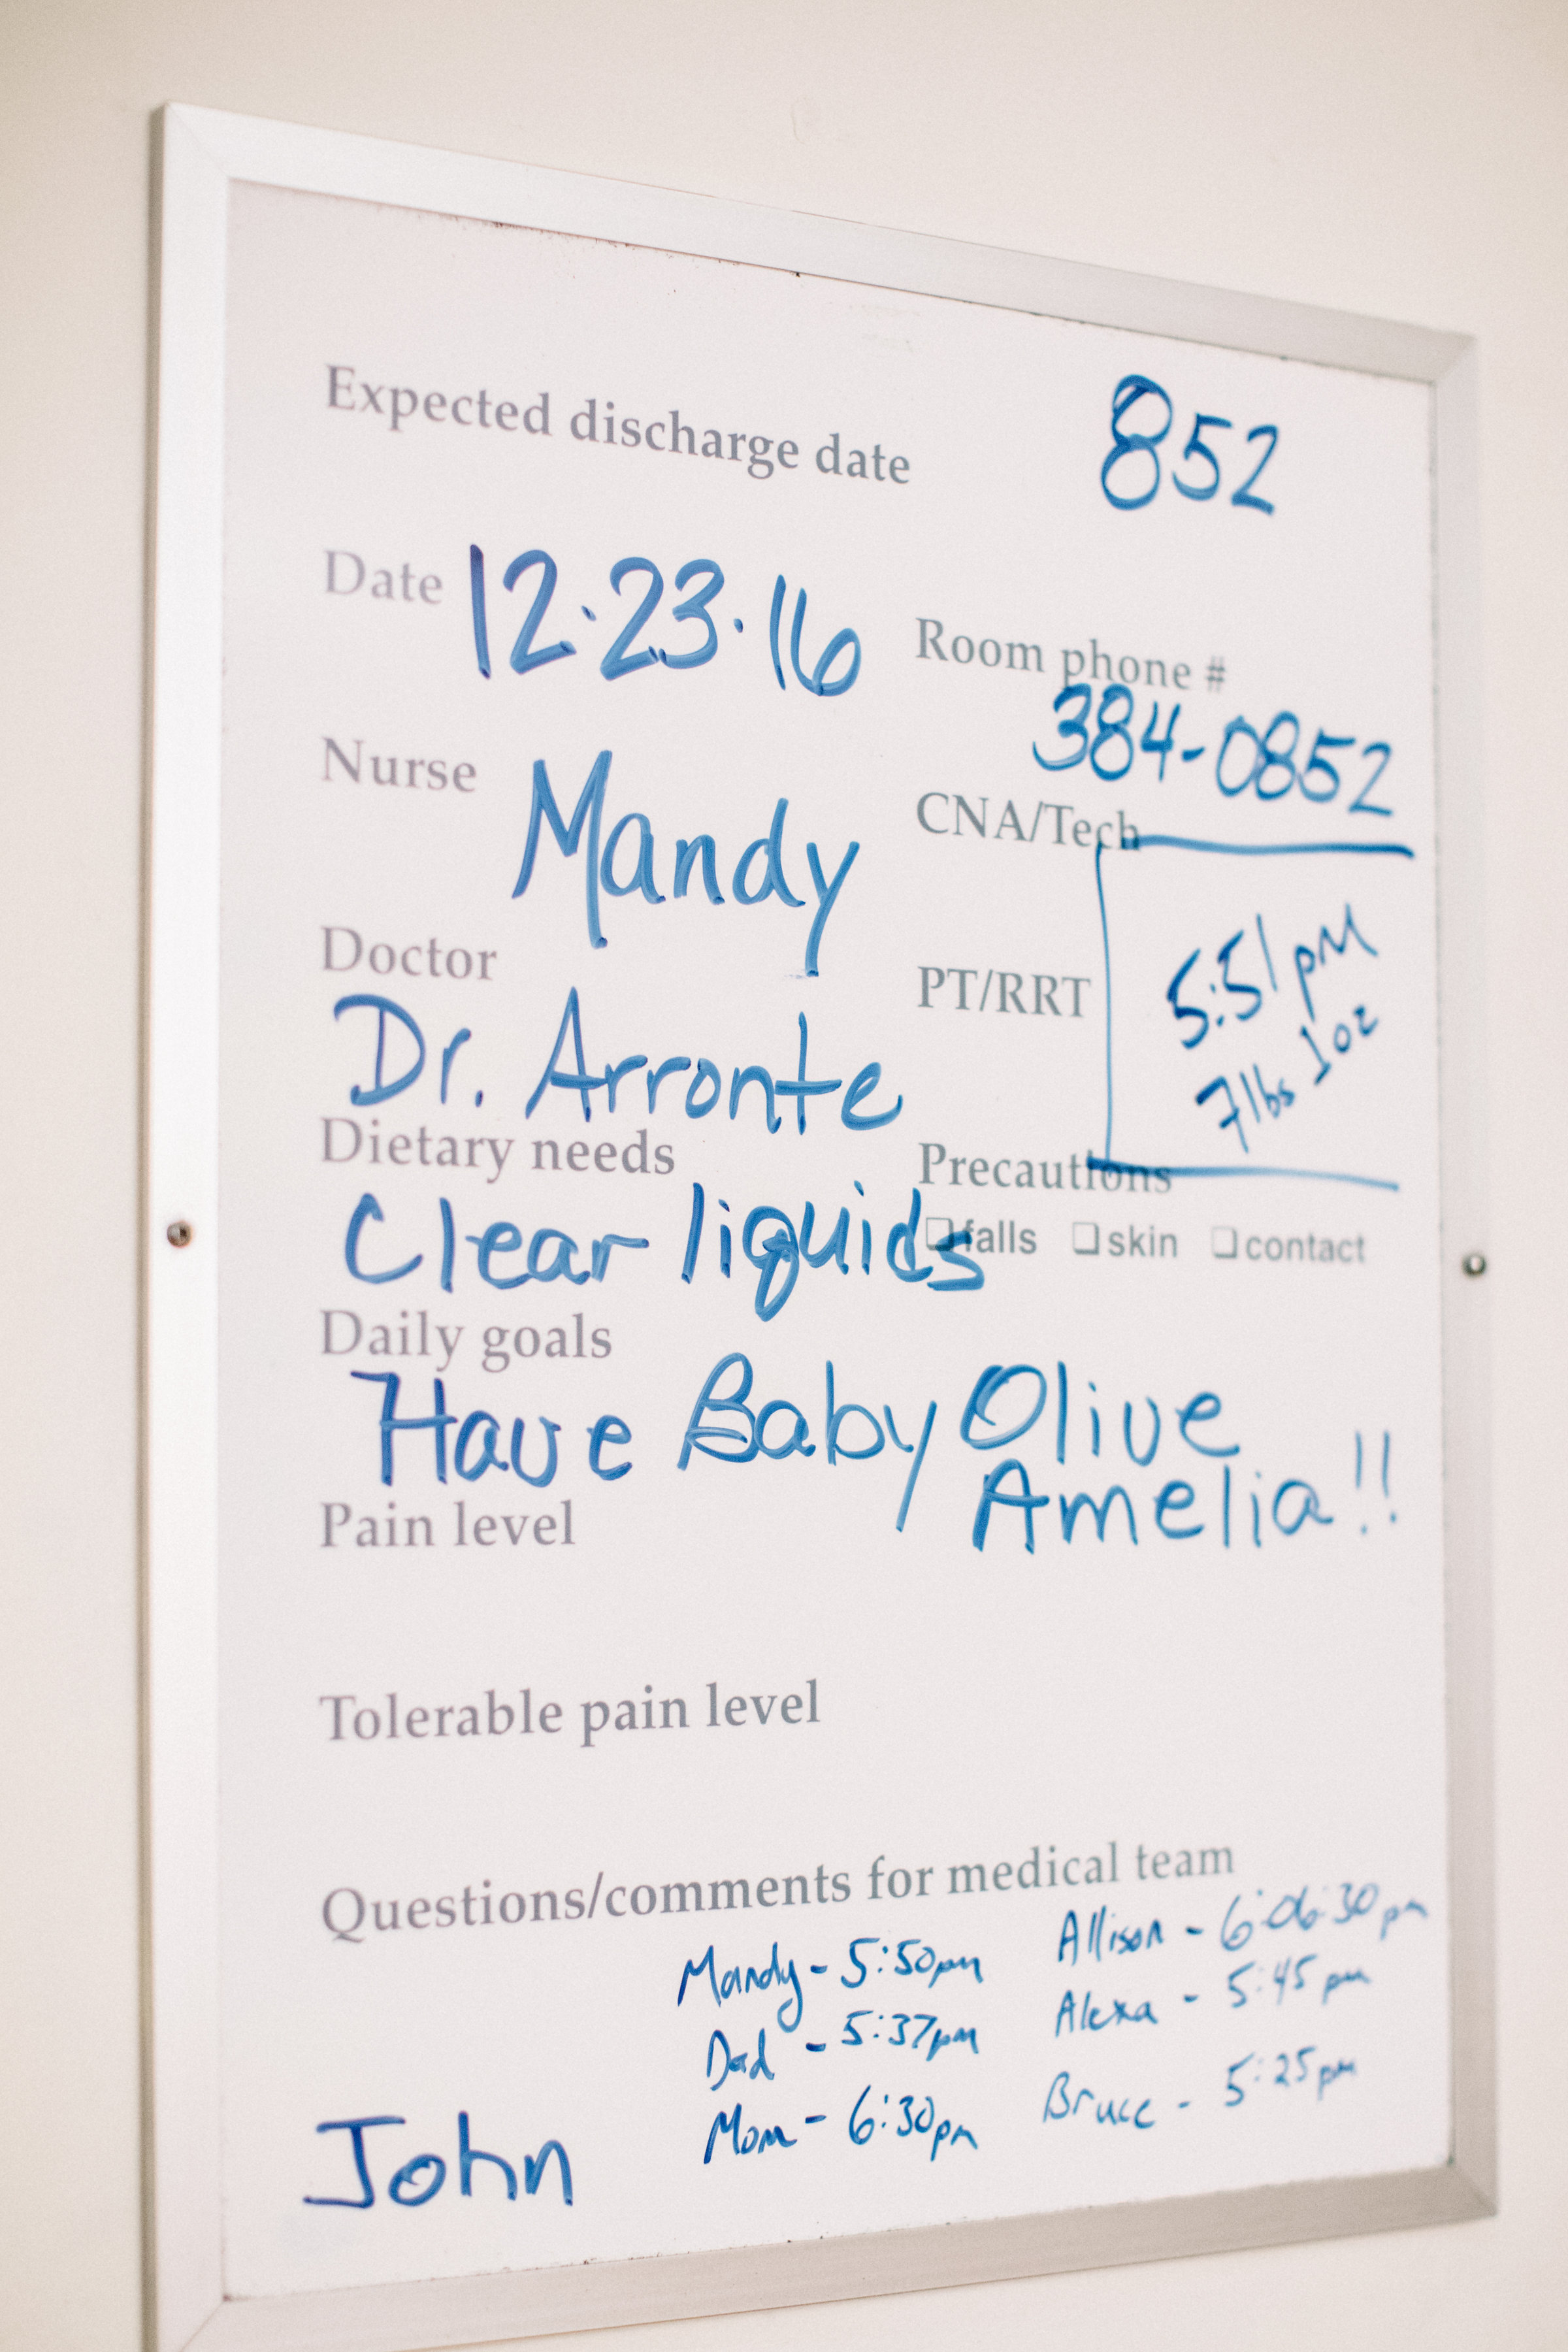 Expected discharge date
852
Date 12.23.16
Room phone #
384-0852
Nurse Mandy
CNA/Tech
Doctor
Dr. Arronte
PT/RRT
5:51 pm
7lbs 1oz
Dietary needs
Clear liquids
Precautions
falls skin contact
Daily goals
Have Baby Olive
Amelia!!
Pain level
Tolerable pain level
Questions/comments for medical team
Mandy - 5:50pm
Dad - 5:37pm
Mom - 6:30pm
Allison - 6:06:30pm
Alexa - 5:45pm
Bruce - 5:25pm
John